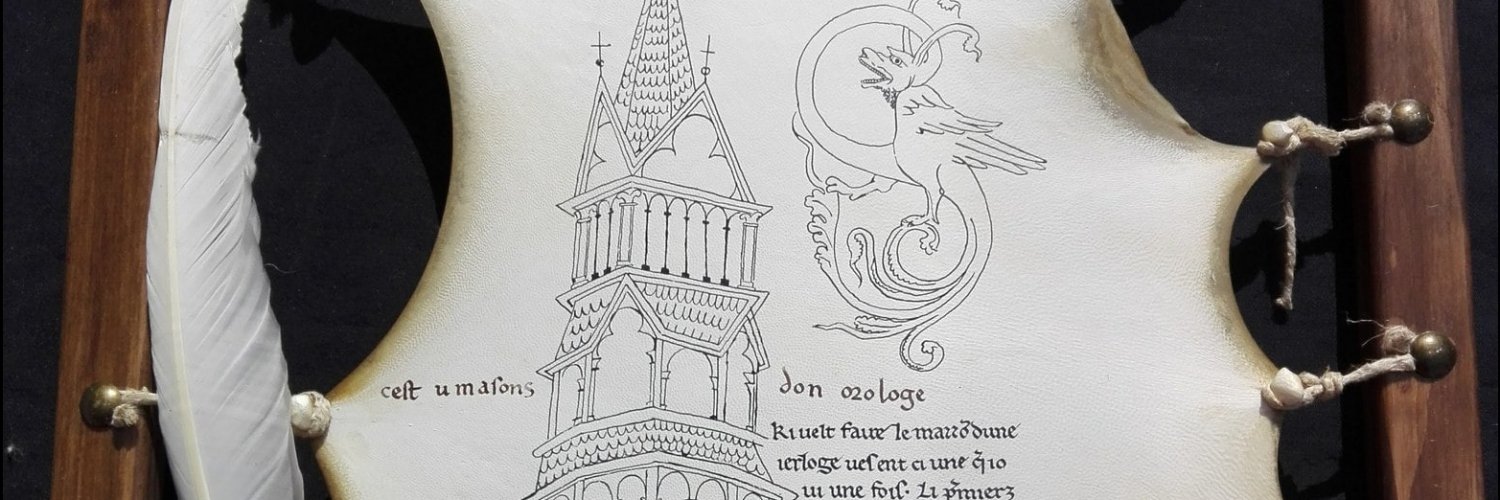 ceſt u maſons don orologe
Ki uelt faire le maizõ dune
ierloge ueſent ci une q̃ io
ui une foiſ· Li p̃mierz